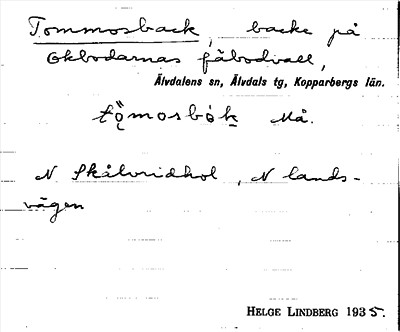 Tommosback, backe på
Okbodarnas fäbodvall,
Älvdalens sn, Älvdals tg, Kopparbergs län.
Må.
N Skålvridhol, N lands-
vägen
HELGE LINDBERG 1935.